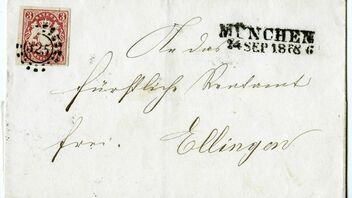 MÜNCHEN
24 SEP 1868 6
325
An das
fürstliche Rentamt
frei. Ellingen